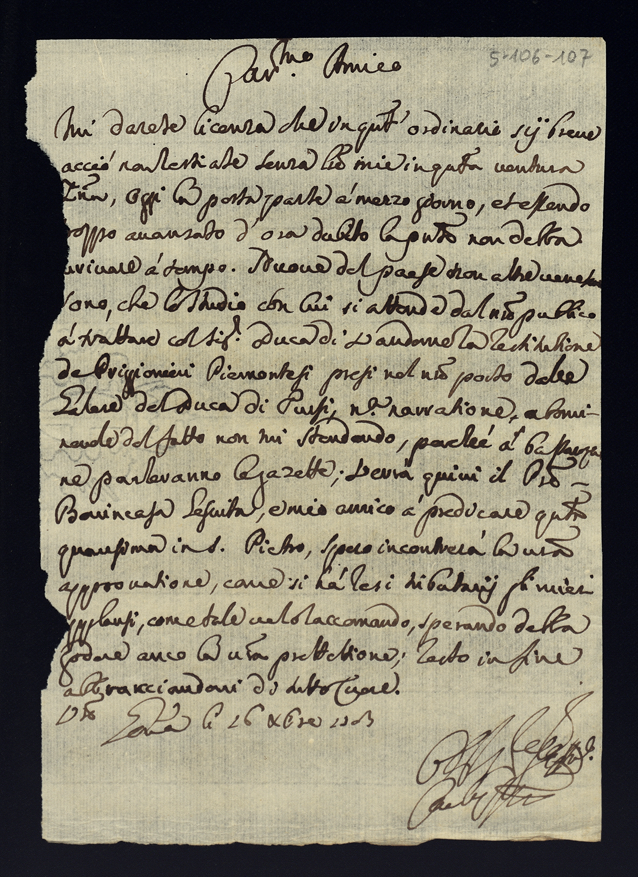 5-106-107
Car.mo Amico
Mi darete licenza che in q.to ordinario sij breve
acciò non restiate senza l.re mie in q.ta ventura
, oggi la posta parte à mezzo giorno, et essendo
avanzato d'ora dubito la p.nte non debba
arrivare à tempo. Nuove del paese non altre
sono, che lo studio con cui si attende dal n.ro publico
à trattare col Sig.r Duca di Vandome la restitutione
de Priggionieri Piemontesi presi nel n.ro porto dalle
Galere del Duca di Tursi, narratione, abomi-
nevole del fatto non mi stendendo, perché à bastanza
ne parlevanno le gazette; Verrà quivi il P.re
Bonincasa Gesuita, e mio amico à predicare q.ta
quaresima in S. Pietro, spero incontrerà la v.ra
approvatione, come si hà resi tributarij gli
applausi, come tale ve lo raccomando, sperando debba
godere anco la v.ra protettione; resto in fine
abbracciandovi di tutto Cuore.
Gen.a li 26 Xbre 1703